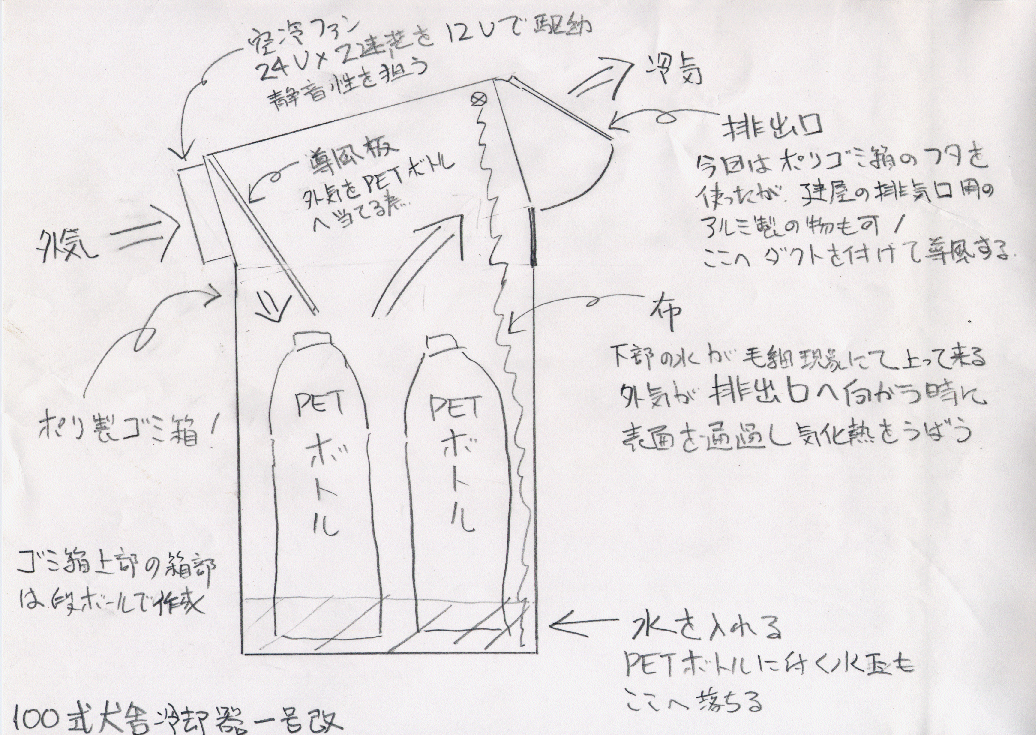 空冷ファン
24V×2連装を12Vで駆動
静音性を担う
冷気
排出口
今回はポリゴミ箱のフタを
使ったが、建屋の排気口用の
アルミ製の物も可!
ここへダクトを付けて導風する
導風板
外気をPETボトル
へ当てる為
外気
布
下部の水が毛細現象にて上って来る
外気が排出口へ向かう時に
表面を通過し気化熱をうばう
ポリ製ゴミ箱!
PETボトル
PETボトル
ゴミ箱上部の箱部
は段ボールで作成
水を入れる
PETボトルに付く水玉も
ここへ落ちる
100式犬舎冷却器一号改